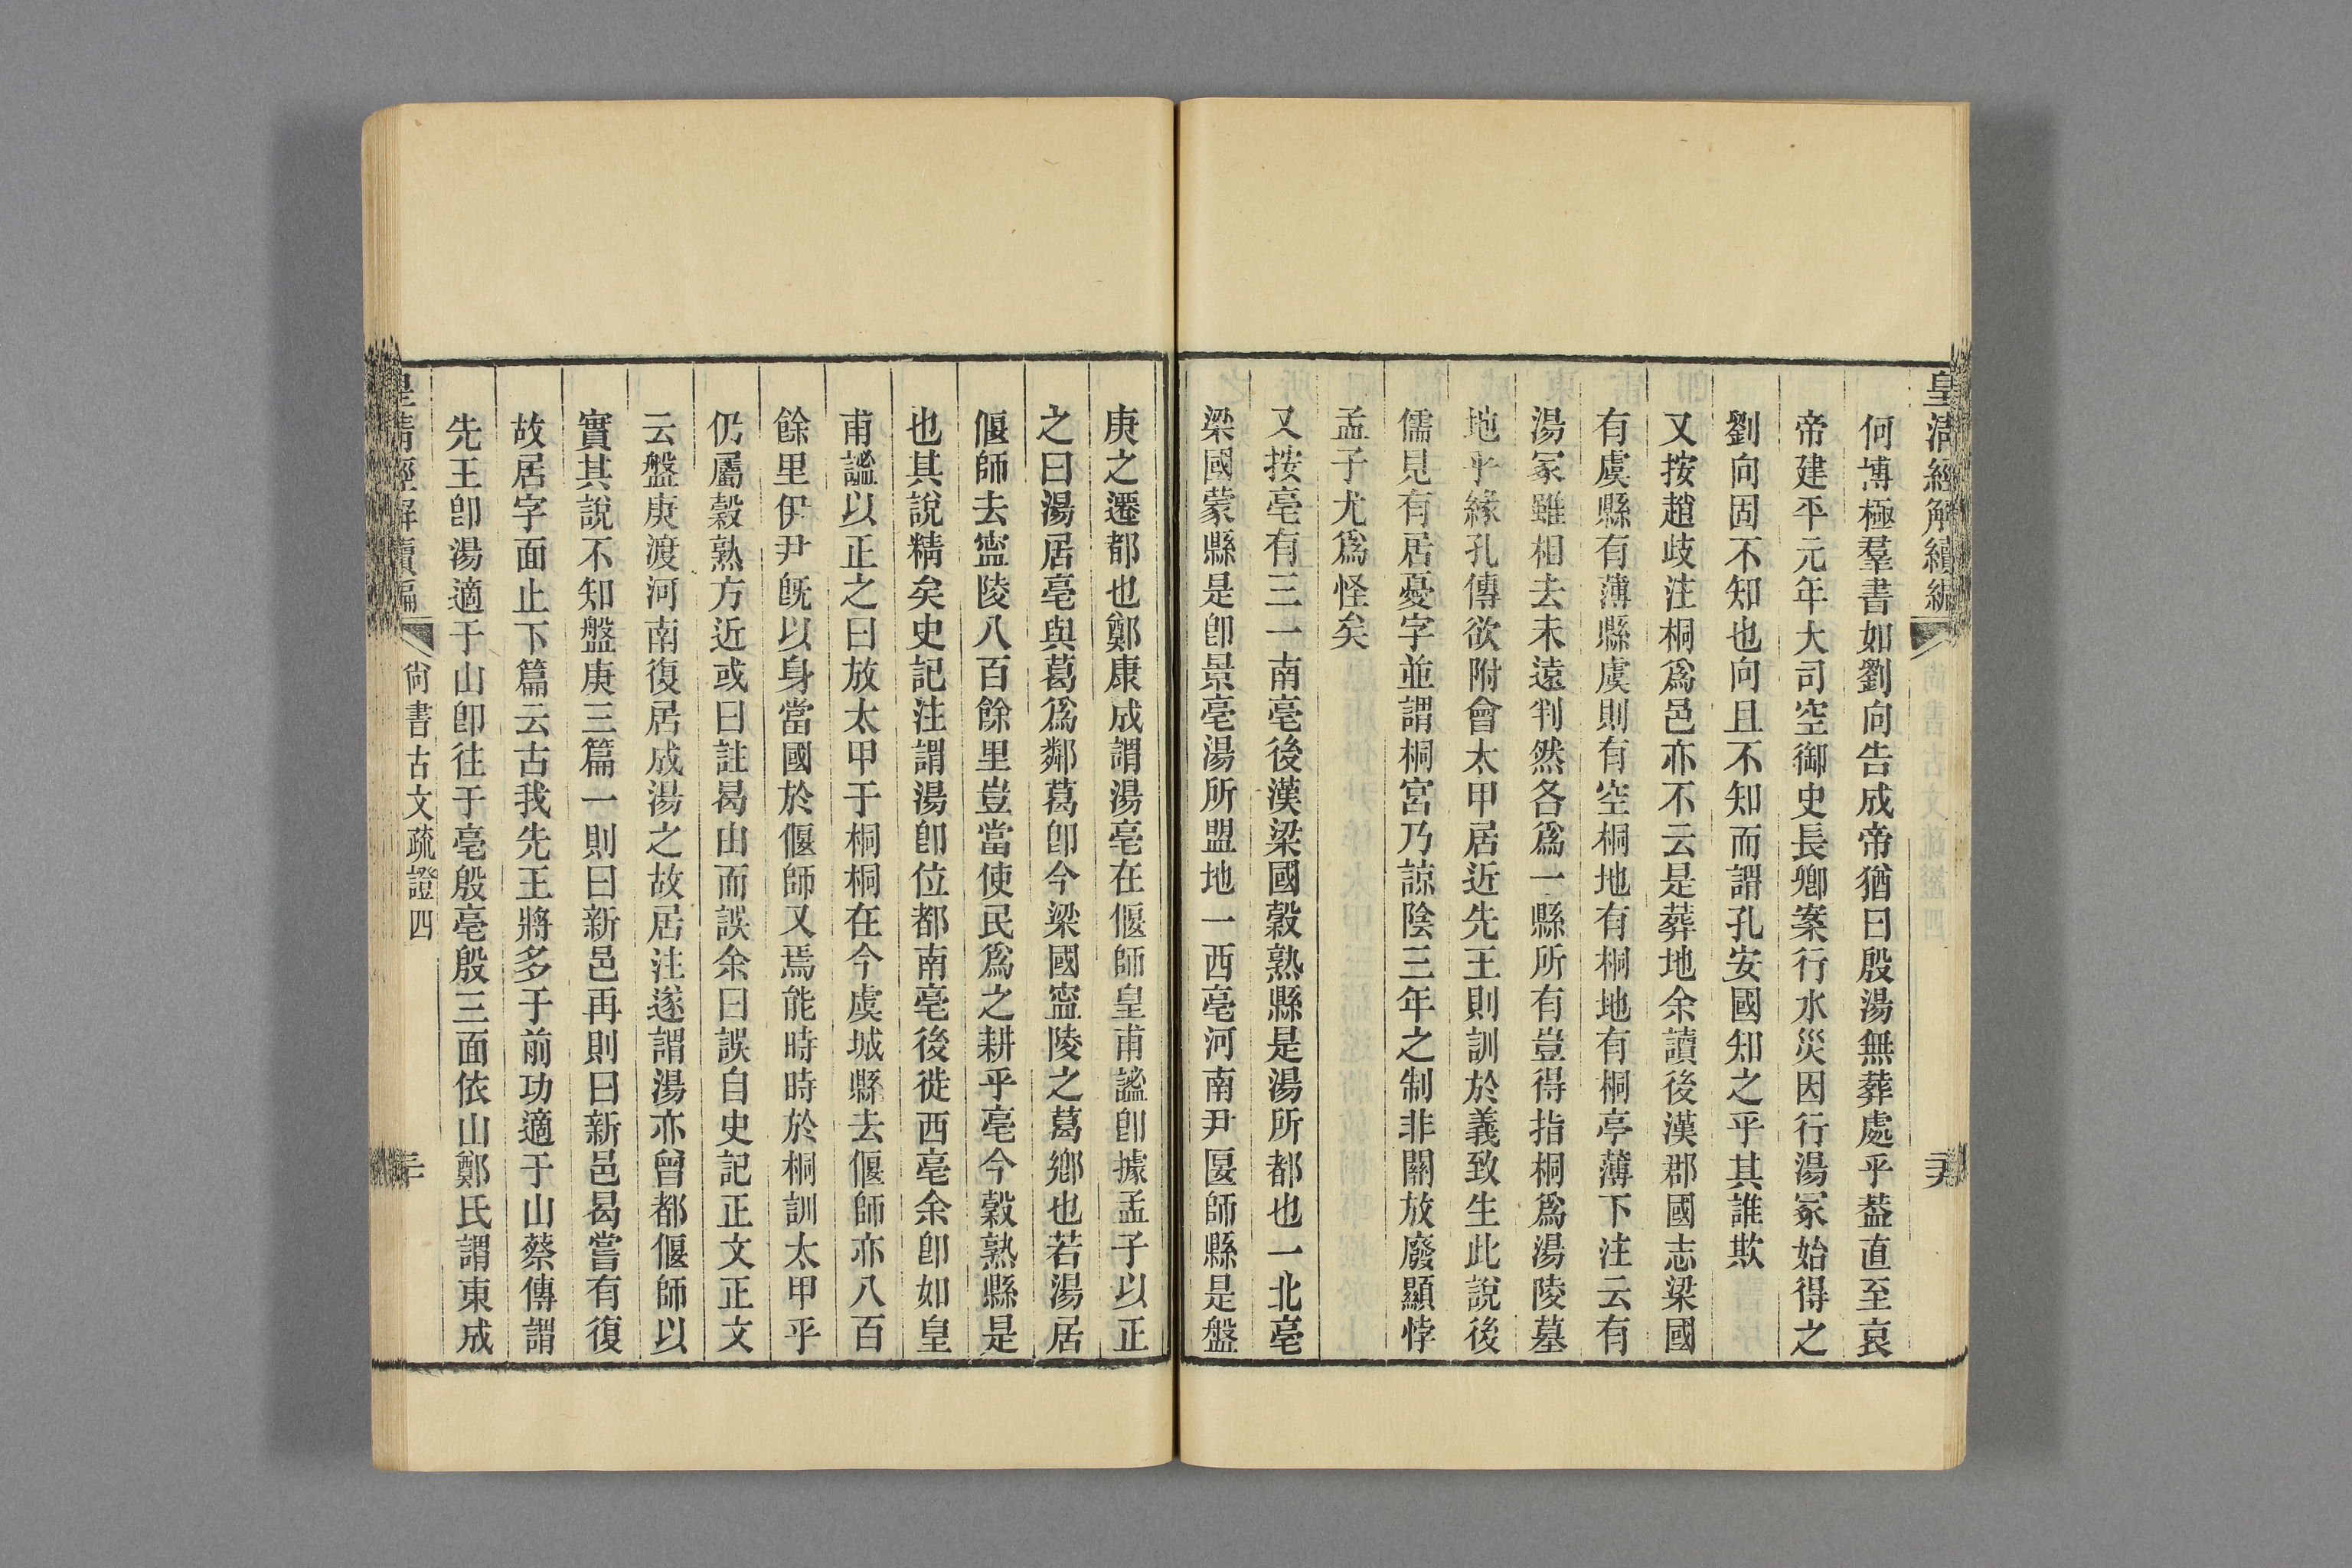 皇清經解續編
何博極羣書如劉向告成帝猶曰殷湯無葬處乎葢直至哀
帝建平元年大司空御史長卿案行水災因行湯冢始得之
劉向固不知也向且不知而謂孔安國知之乎其誰欺
又按趙歧注桐爲邑亦不云是葬地余讀後漢郡國志梁國
有虞縣有薄縣虞則有空桐地有桐地有桐亭薄下注云有
湯冢雖相去未遠判然各爲一縣所有豈得指桐爲湯陵墓
地乎緣孔傳欲附會太甲居近先王則訓於義致生此說後
儒見有居憂字並謂桐宮乃諒陰三年之制非關放廢顯悖
孟子尤爲怪矣
又按亳有三一南亳後漢梁國穀熟縣是湯所都也一北亳
梁國蒙縣是卽景亳湯所盟地一西亳河南尹匽師縣是盤
庚之遷都也鄭康成謂湯亳在偃師皇甫謐卽據孟子以正
之曰湯居亳與葛爲鄰葛卽今梁國寍陵之葛鄉也若湯居
偃師去寍陵八百餘里豈當使民爲之耕乎亳今穀熟縣是
也其說精矣史記注謂湯卽位都南亳後徙西亳余卽如皇
甫謐以正之曰放太甲于桐桐在今虞城縣去偃師亦八百
餘里伊尹旣以身當國於偃師又焉能時時於桐訓太甲乎
仍屬穀熟方近或曰註曷由而誤余曰誤自史記正文正文
云盤庚渡河南復居成湯之故居注遂謂湯亦曾都偃師以
實其說不知盤庚三篇一則曰新邑再則曰新邑曷嘗有復
故居字面止下篇云古我先王將多于前功適于山蔡傳謂
先王卽湯適于山卽往于亳殷亳殷三面依山鄭氏謂東成
皇清經解續編
尙書古文疏證四